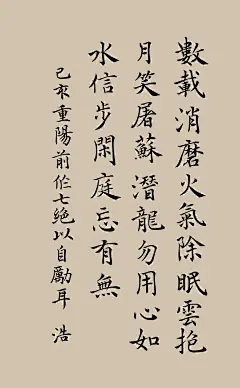 數載消磨火氣除眠雲抱
月笑屠蘇潛龍勿用心如
水信步閑庭忘有無
己亥重陽前作七絕以自勵耳 浩